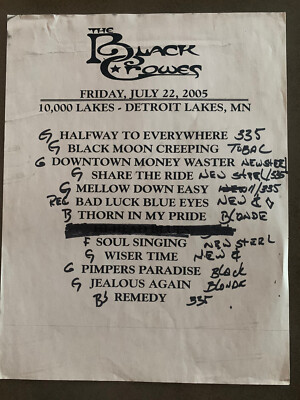 THE
BLACK
CROWES
FRIDAY, JULY 22, 2005
10,000 LAKES - DETROIT LAKES, MN
G HALFWAY TO EVERYWHERE 335
G BLACK MOON CREEPING TOBAC
G DOWNTOWN MONEY WASTER NEW STEEL
G SHARE THE RIDE NEW STEEL/335
G MELLOW DOWN EASY /335
REG BAD LUCK BLUE EYES NEW
B THORN IN MY PRIDE BLONDE
F SOUL SINGING NEW STEEL
G WISER TIME NEW
G PIMPERS PARADISE BLACK
G JEALOUS AGAIN BLONDE
REMEDY 335